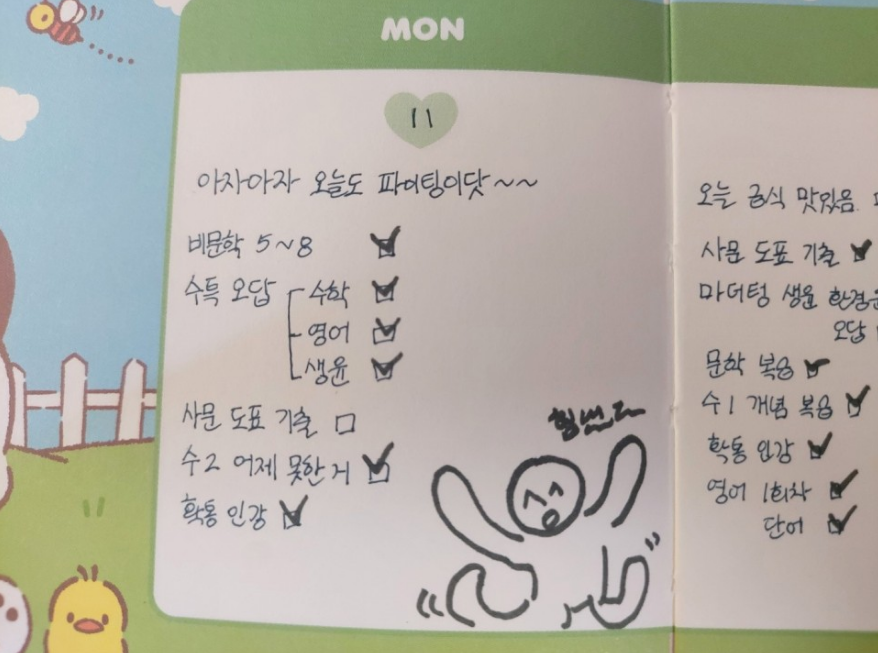 MON
11
아자아자 오늘도 파이팅이닷~~
비문학 5~8
수특 오답 수학
영어
생윤
사문 도표 기출
수2 어제 못한 거
확통 인강
힘낸다
오늘 급식 맛있음.
사문 도표 기출
마더텅 생윤 환경윤
오답
문학 복습
수1 개념 복습
확통 인강
영어 1회차
단어